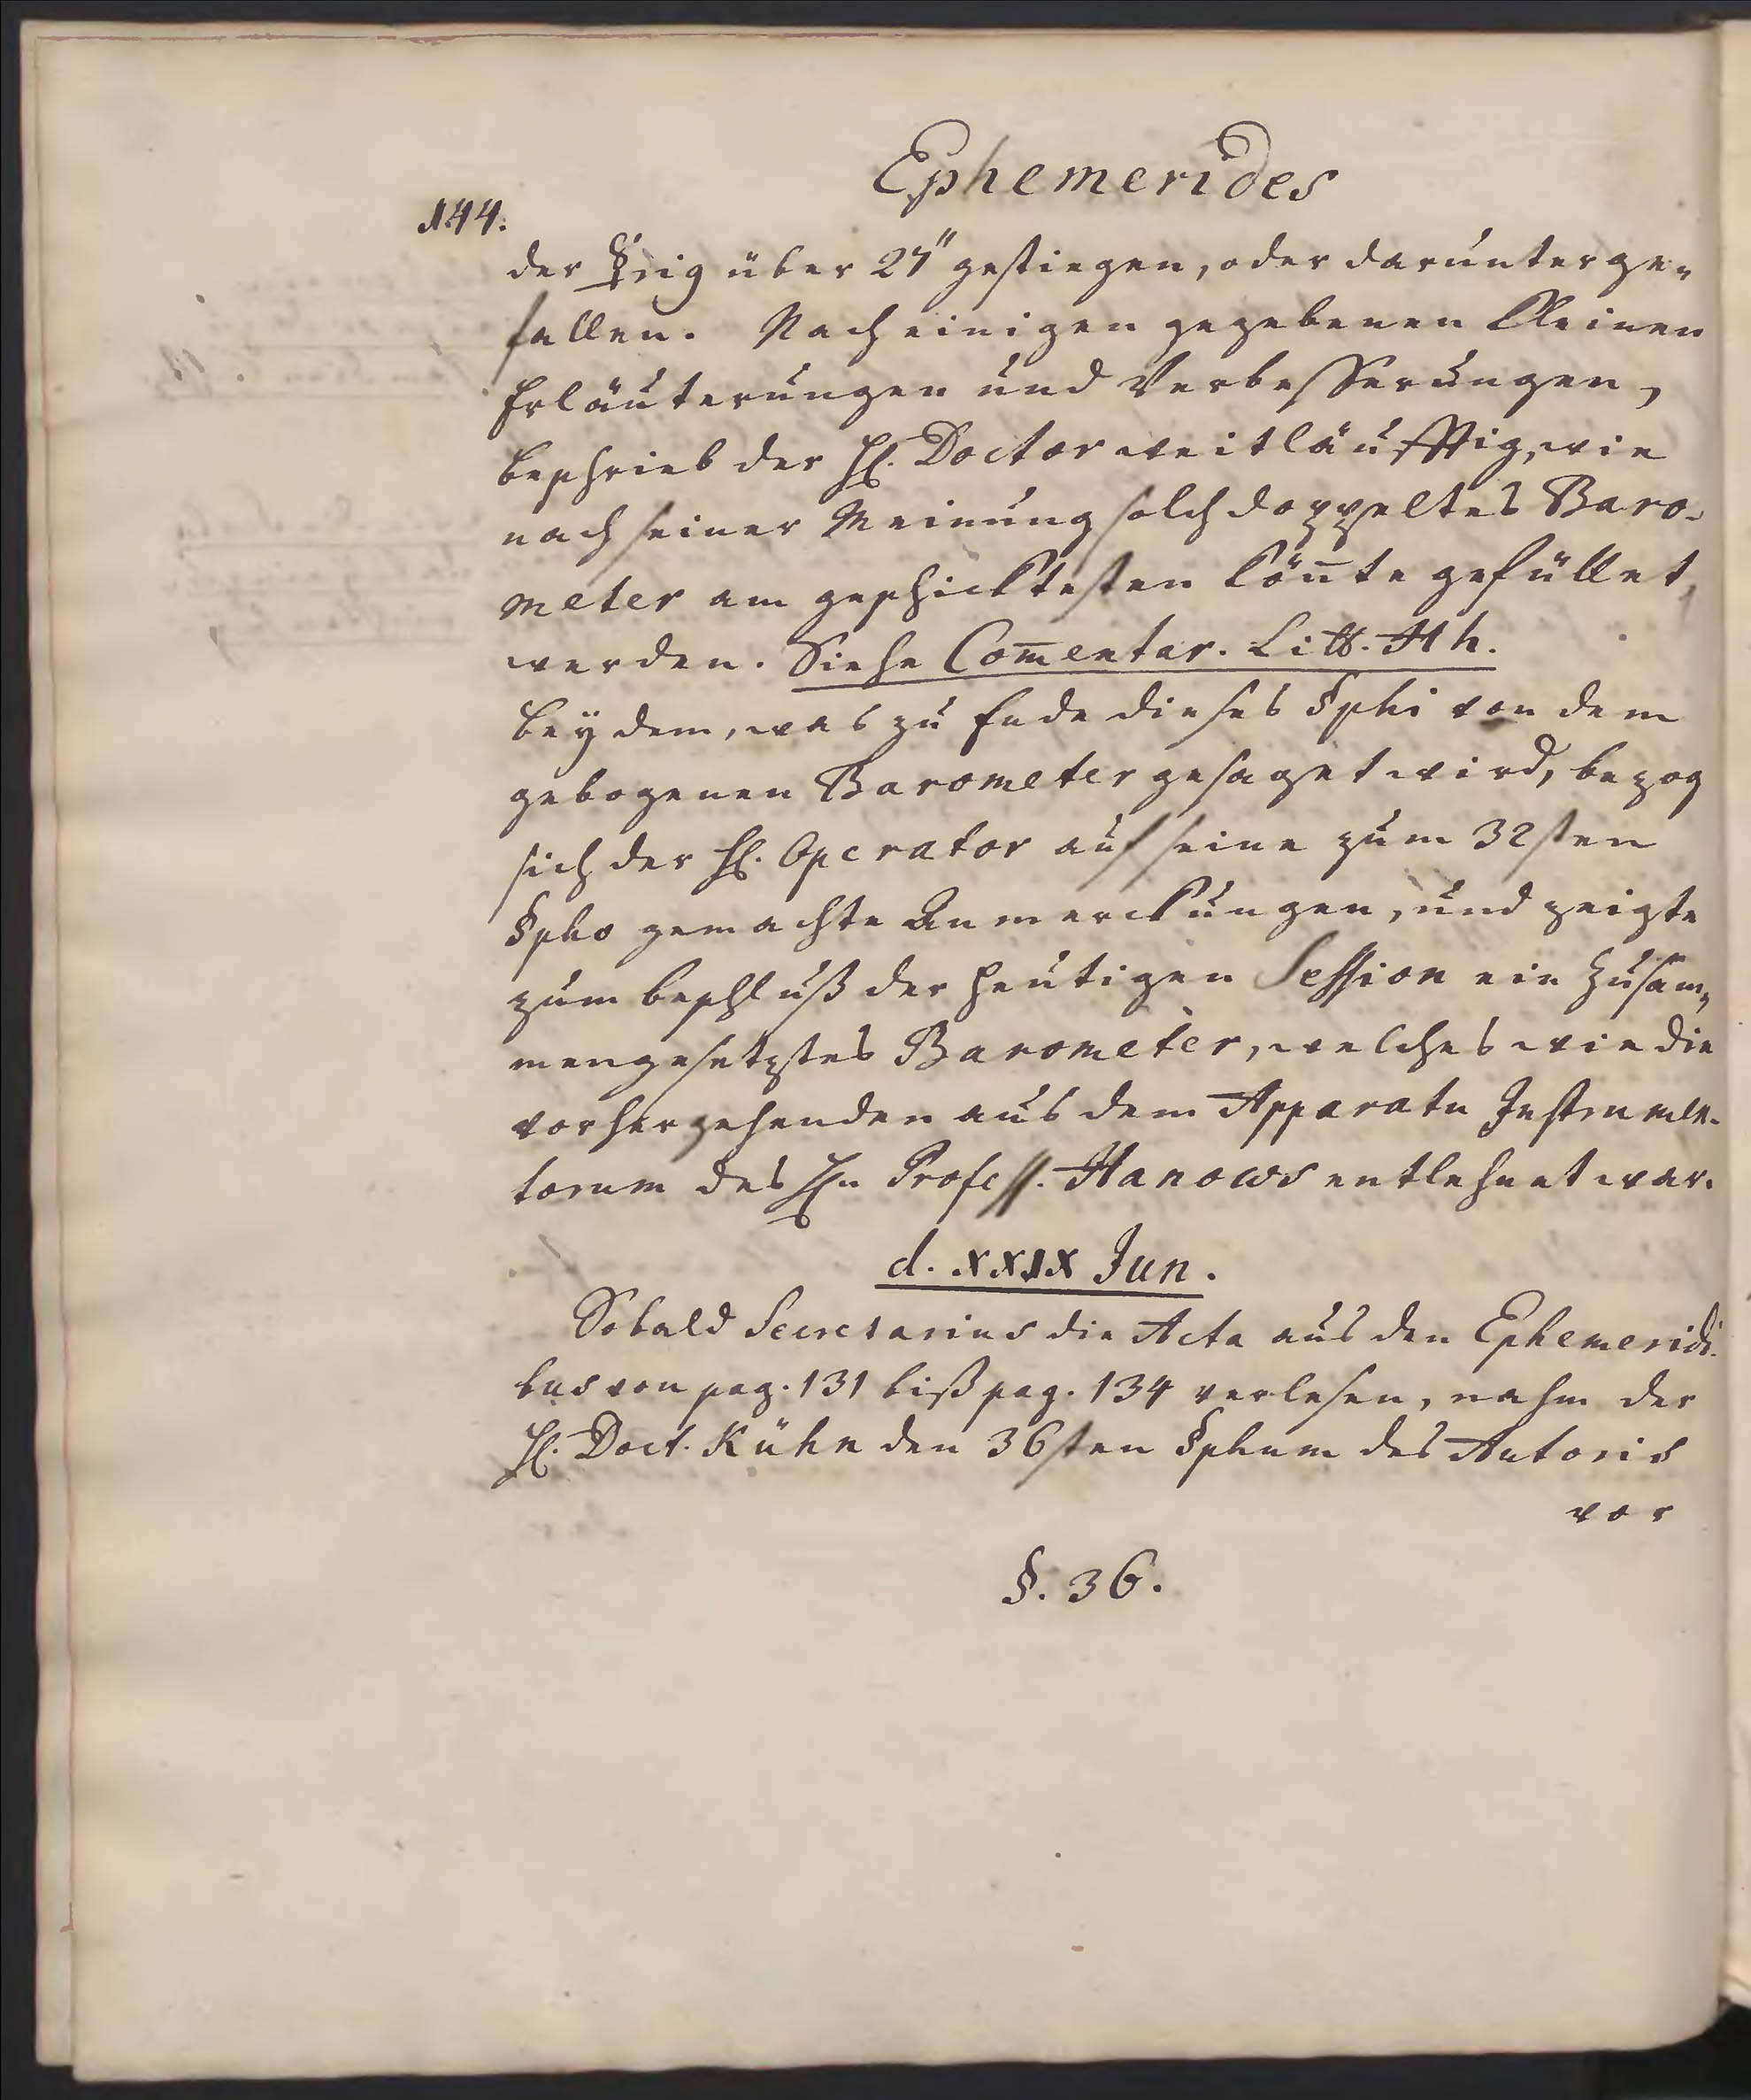 Ephemerides
144.
der ☿rius über 27" gestiegen, oder darunter ge-
fallen. Nach einigen gegebenen kleinen
Erläuterungen und Verbesserungen,
beschrieb der H. Doctor weitläufftig, wie
nach seiner Meinung solch doppeltes Baro-
meter am geschicktesten kön̄te gefüllet
werden. Siehe Com̄entar. Litt. Hh.
Bey dem, was zu Ende dieses §phi von dem
gebogenen Barometer gesaget wird, bezog
sich der H. Operator auf seine zum 32sten
§pho gemachte Anmerckungen, und zeigte
zum Beschluß der heutigen Session ein Zusam-
mengesetztes Barometer, welches wie die
vorhergehenden aus dem Apparatu Instrumen-
torum des Hn Profess. Hanows entlehnet war.
d. XXIX Jun.
Sobald Secretarius die Acta aus den Ephemeridi-
bus von pag. 131 biß pag. 134 verlesen, nahm der
H. Doct. Kühn den 36sten §phum des Autoris
vor
§. 36.